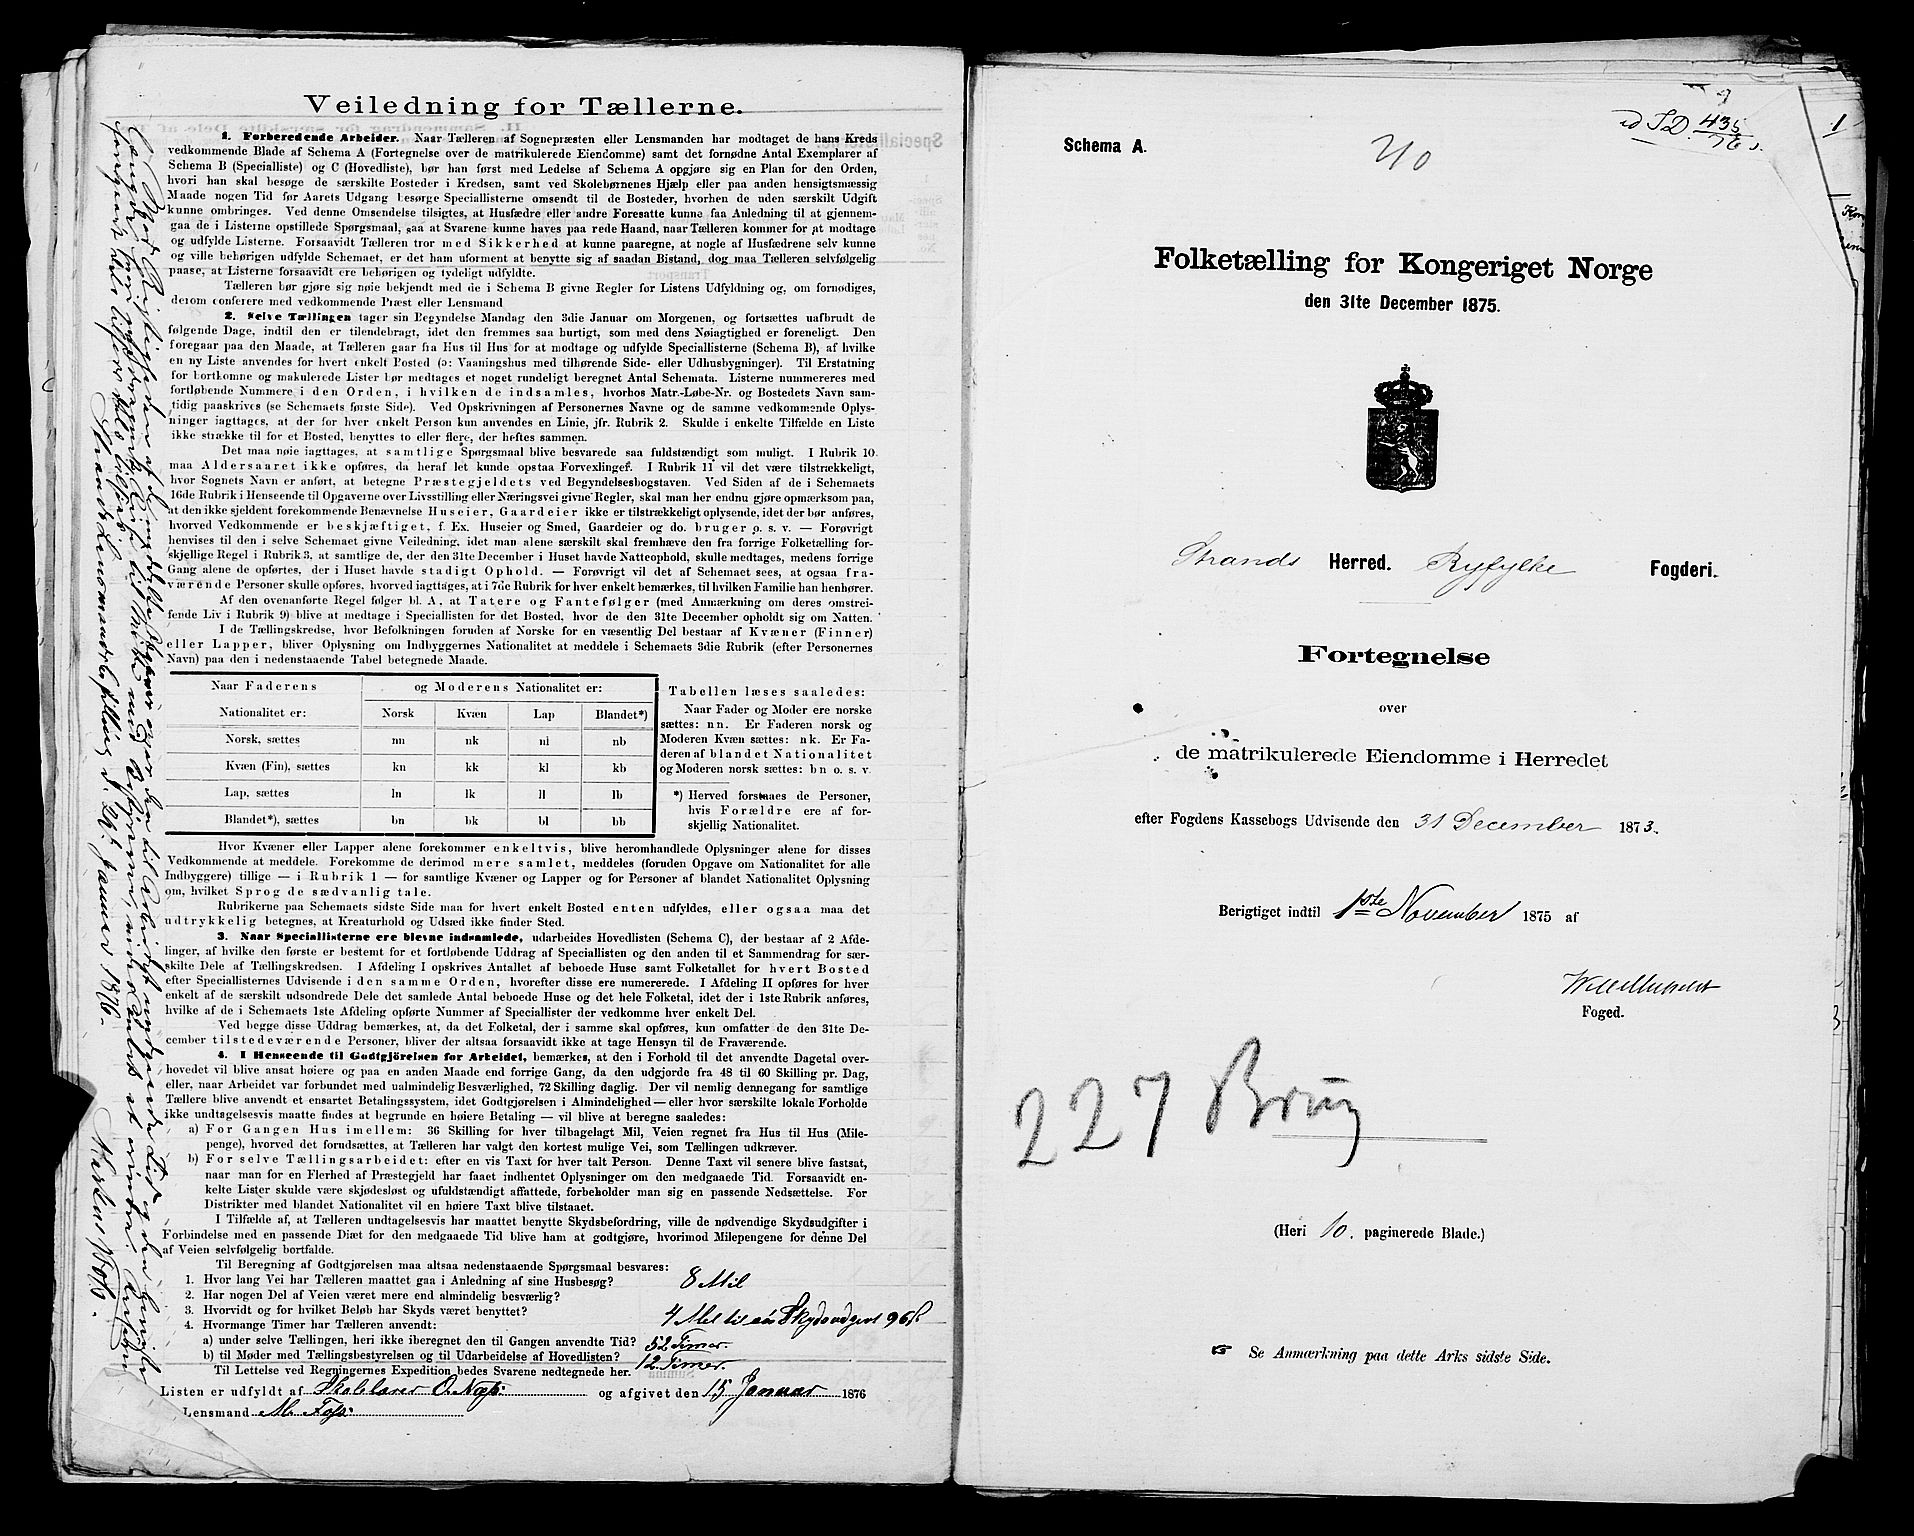 Veiledning for Tællerne.
1. Forberedende Arbeider. Naar Tælleren af Sognepræsten eller Lensmanden har modtaget de hans Kreds
vedkommende Blade af Schema A (Fortegnelse over de matrikulerede Eiendomme) samt det fornødne Antal Exemplarer af
Schema B (Specialliste) og C (Hovedliste), bør han først med Ledelse af Schema A opgjøre sig en Plan for den Orden,
hvori han skal besøge de særskilte Bosteder i Kredsen, samt ved Skolebørnenes Hjælp eller paa anden hensigtsmæssig
Maade nogen Tid før Aarets Udgang besørge Speciallisterne omsendt til de Bosteder, hvorhen de uden særskilt Udgift
kunne ombringes. Ved denne Omsendelse tilsigtes, at Husfædre eller andre Foresatte kunne faa Anledning til at gjennem-
gaa de i Listerne opstillede Spørgsmaal, saa at Svarene kunne haves paa rede Haand, naar Tælleren kommer for at modtage
og udfylde Listerne. Forsaavidt Tælleren tror med Sikkerhed at kunne paaregne, at nogle af Husfædrene selv kunne
og ville behørigen udfylde Schemaet, er det ham uforment at benytte sig af saadan Bistand, dog maa Tælleren selvfølgelig
paase, at Listerne forsaavidt ere behørigen og tydeligt udfyldte.
Tælleren bør gjøre sig nøie bekjendt med de i Schema B givne Regler for Listens Udfyldning og, om fornødiges,
derom conferere med vedkommende Præst eller Lensmand
2. Selve Tællingen tager sin Begyndelse Mandag den 3die Januar om Morgenen, og fortsættes uafbrudt de
følgende Dage, indtil den er tilendebragt, idet den fremmes saa hurtigt, som med dens Nøiagtighed er foreneligt. Den
foregaar paa den Maade, at Tælleren gaar fra Hus til Hus for at modtage og udfylde Speciallisterne (Schema B), af hvilke
en ny Liste anvendes for hvert enkelt Bosted (ɔ: Vaaningshus med tilhørende Side- eller Udhusbygninger). Til Erstatning
for bortkomne og makulerede Lister bør medtages et noget rundeligt beregnet Antal Schemata. Listerne nummereres med
fortløbende Nummere i den Orden, i hvilken de indsamles, hvorhos Matr.-Løbe-Nr. og Bostedets Navn sam-
tidig paaskrives (se Schemaets første Side). Ved Opskrivningen af Personernes Navne og de samme vedkommende Oplys-
ninger iagttages, at der for hver enkelt Person kun anvendes en Linie, jfr. Rubrik 2. Skulde i enkelte Tilfælde en Liste
ikke strække til for et Bosted, benyttes to eller flere, der heftes sammen.
Det maa nøie iagttages, at samtlige Spørgsmaal blive besvarede saa fuldstændigt som muligt. I Rubrik 10
maa Aldersaaret ikke opføres, da heraf let kunde opstaa Forvexlinger. I Rubrik 11 vil det være tilstrækkeligt,
hvor Sognets Navn er anført, at betegne Præstegjeldets ved Begyndelsesbogstaven. Ved Siden af de i Schemaets
16de Rubrik i Henseende til Opgaverne over Livsstilling eller Næringsvei givne Regler, skal man her endnu gjøre opmærksom paa,
at den ikke sjeldent forekommende Benævnelse Huseier, Gaardeier ikke er tilstrækkeligt oplysende, idet der bør anføres,
hvorved Vedkommende er beskjæftiget, f. Ex. Huseier og Smed, Gaardeier og do. bruger o. s. v. — Forøvrigt
henvises til den i selve Schemaet givne Veiledning, idet man alene særskilt skal fremhæve den fra forrige Folketælling for-
skjellige Regel i Rubrik 3, at samtlige de, der den 31te December i Huset havde Natteophold, skulle medtages, medens forrige
Gang alene de opførtes, der i Huset havde stadigt Ophold. — Forøvrigt vil det af Schemaet sees, at ogsaa fra-
værende Personer skulle opføres, hvorved iagttages, at i 7de Rubrik for hver enkelt bemærkes, til hvilken Familie han henhører.
Af den ovenanførte Regel følger bl. A, at Tatere og Fantefølger (med Anmærkning om deres omstrei-
fende Liv i Rubrik 9) blive at medtage i Speciallisten for det Bosted, hvor de den 31te December opholdt sig om Natten.
I de Tællingskredse, hvor Befolkningen foruden af Norske for en væsentlig Del bestaar af Kvæner (Finner)
eller Lapper, bliver Oplysning om Indbyggernes Nationalitet at meddele i Schemaets 3die Rubrik (efter Personernes
Navn) paa den i nedenstaaende Tabel betegnede Maade.
Naar Faderens og Moderens Nationalitet er:
Nationalitet er: Norsk Kvæn Lap Blandet*)
Norsk, sættes nn nk nl nb
Kvæn (Fin), sættes kn kk kl kb
Lap, sættes ln lk ll lb
Blandet*), sættes bn bk bl bb
Tabellen læses saaledes:
Naar Fader og Moder ere norske
sættes: nn. Er Faderen norsk og
Moderen Kvæn sættes: nk. Er Fa-
deren af blandet Nationalitet
og Moderen norsk sættes: bn o. s. v.
*) Herved forstaaes de Personer,
hvis Forældre ere af for-
skjellig Nationalitet.
Hvor Kvæner eller Lapper alene forekommer enkeltvis, blive heromhandlede Oplysninger alene for disses
Vedkommende at meddele. Forekomme de derimod mere samlet, meddeles (foruden Opgave om Nationalitet for alle
Indbyggere) tillige — i Rubrik 1 — for samtlige Kvæner og Lapper og for Personer af blandet Nationalitet Oplysning
om, hvilket Sprog de sædvanlig tale.
Rubrikerne paa Schemaets sidste Side maa for hvert enkelt Bosted enten udfyldes, eller ogsaa maa det
udtrykkelig betegnes, at Kreaturhold og Udsæd ikke finder Sted.
3. Naar Speciallisterne ere blevne indsamlede, udarbeides Hovedlisten (Schema C), der bestaar af 2 Afde-
linger, af hvilke den første er bestemt for et fortløbende Uddrag af Speciallisten og den anden til et Sammendrag for sær-
skilte Dele af Tællingskredsen. I Afdeling I opskrives Antallet af beboede Huse samt Folketallet for hvert Bosted
efter Speciallisternes Udvisende i den samme Orden, hvorefter disse ere numererede. I Afdeling II opføres for hver
enkelt af de særskilt udsondrede Dele det samlede Antal beboede Huse og det hele Folketal, idet der i 1ste Rubrik anføres,
hvilke af de i Schemaets 1ste Afdeling opførte Nummer af Speciallister der vedkomme hver enkelt Del.
Ved begge disse Uddrag bemærkes, at, da det Folketal, der i samme skal opføres, kun omfatter de den 31te De-
cember tilstedeværende Personer, bliver der altsaa forsaavidt ikke at tage Hensyn til de Fraværende.
4. I Henseende til Godtgjörelsen for Arbeidet, bemærkes, at den i Forhold til det anvendte Dagetal over-
hovedet vil blive ansat høiere og paa en anden Maade end forrige Gang, da den udgjorde fra 48 til 60 Skilling pr. Dag,
eller, naar Arbeidet var forbundet med ualmindelig Besværlighed, 72 Skilling daglig. Der vil nemlig dennegang for samtlige
Tællere blive anvendt et ensartet Betalingssystem, idet Godtgjörelsen i Almindelighed — eller hvor særskilte lokale Forholde
ikke undtagelsesvis maatte findes at begrunde en høiere Betaling — vil blive at beregne saaledes:
a) For Gangen Hus imellem: 36 Skilling for hver tilbagelagt Mil, Veien regnet fra Hus til Hus (Mile-
penge), hvorved det forudsættes, at Tælleren har valgt den kortest mulige Vei, som Tællingen udkræver.
b) For selve Tællingsarbeidet: efter en vis Taxt for hver talt Person. Denne Taxt vil senere blive fastsat,
naar man for en Flerhed af Præstegjeld har faaet indhentet Oplysninger om den medgaaede Tid. Forsaavidt en-
kelte Lister skulde være skjødesløst og ufuldstændigt affattede, forbeholder man sig en passende Nedsættelse. For
Distrikter med blandet Nationalitet vil en høiere Taxt blive tilstaaet.
I Tilfælde af, at Tælleren undtagelsesvis har maattet benytte Skydsbefordring, ville de nødvendige Skydsudgifter i
Forbindelse med en passende Diæt for den medgaaede Tid blive ham at godtgjøre, hvorimod Milepengene for denne Del
af Veien selvfølgelig bortfalde.
Til Beregning af Godtgjørelsen maa altsaa nedenstaaende Spørgsmaal besvares:
1. Hvor lang Vei har Tælleren maattet gaa i Anledning af sine Husbesøg? 8 Mil
2. Har nogen Del af Veien været mere end almindelig besværlig?
3. Hvorvidt og for hvilket Beløb har Skyds været benyttet? 4 Mil til
4. Hvormange Timer har Tælleren anvendt:
a) under selve Tællingen, heri ikke iberegnet den til Gangen anvendte Tid? 52 Timer.
b) til Møder med Tællingsbestyrelsen og til Udarbeidelse af Hovedlisten? 12 Timer.
Til Lettelse ved Regningernes Expedition bedes Svarene nedtegnede her.
Listen er udfyldt af Skolelærer O. Næs. og afgivet den 15 Januar 1876
Lensmand M. Foss.
Strands Lensmandsbestilling d. 29. Januar 1876.
Schema A.
40
SD. 435/76
Folketælling for Kongeriget Norge
den 31te December 1875.
Strands Herred. Ryfylke Fogderi.
Fortegnelse
over
de matrikulerede Eiendomme i Herredet
efter Fogdens Kassebogs Udvisende den 31 December 1873.
Berigtiget indtil 1ste November 1875 af
Foged.
227 Brug
(Heri 10. paginerede Blade.)
☞ Se Anmærkning paa dette Arks sidste Side.
1